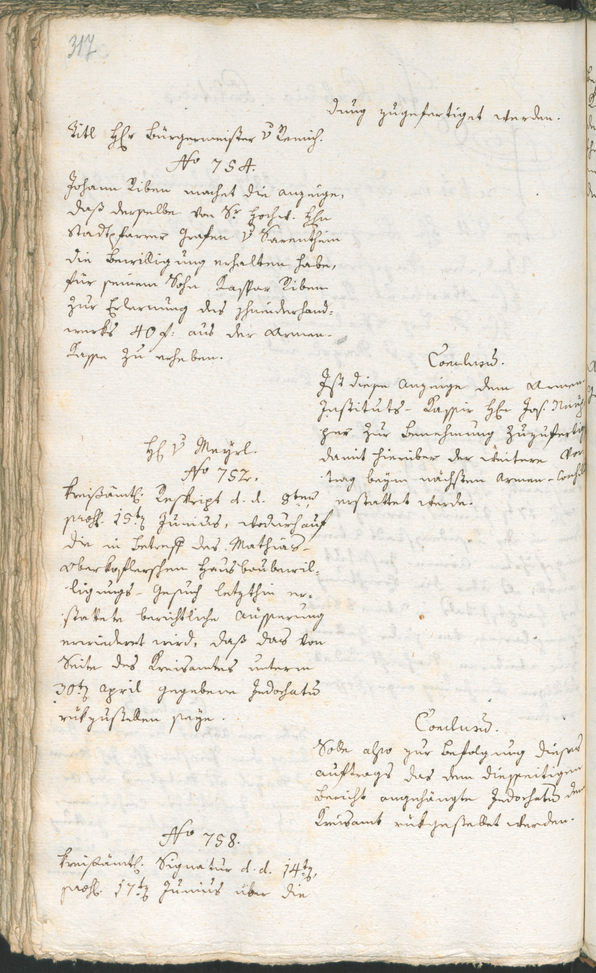 317
dung zugefertiget werden.
Titl Hh Bürgermeister v Remich.
No 754.
Johann Riben machet die Anzeige,
daß derselbe von Sr Hochw. Hhn
Stadtpfarrer Grafen v Sarenthein
die Bewilligung erhalten habe,
für seinem Sohn Kaspar Riben
zur Erlernung des Schneiderhand-
werks 40 f. aus der Armen-
Kasse zu erheben.
Conclusum.
Ist diese Anzeige dem Armen
Instituts-Kassir Hh Jos.
zur Benehmung zuzufertig
damit hierüber der weitere Vor
trag beym nächsten Armen-
erstattet werde.
Hh v Mayrl.
No 757.
Kreisämtl. Reskript d. d. 8ten
praes. 15ten Junius, wodurch auf
die in Betreff des Mathias-
Oberkoflerschen Hausbaubewil-
ligungs-Gesuch letzthin er-
stattete berichtliche Äusserung
erwiederet wird, daß das von
Seite des Kreisamtes unterm
30ten April gegebene Indorsatum
rükzustellen seye.
Conclusum.
Solle also zur Befolgung dieses
Auftrags das dem diesseitigen
Bericht angehängte Indorsatum dem
Kreisamt rükgestellet werden.
No 758.
Kreisämtl. Signatur d. d. 14ten,
praes. 17ten Junius über die